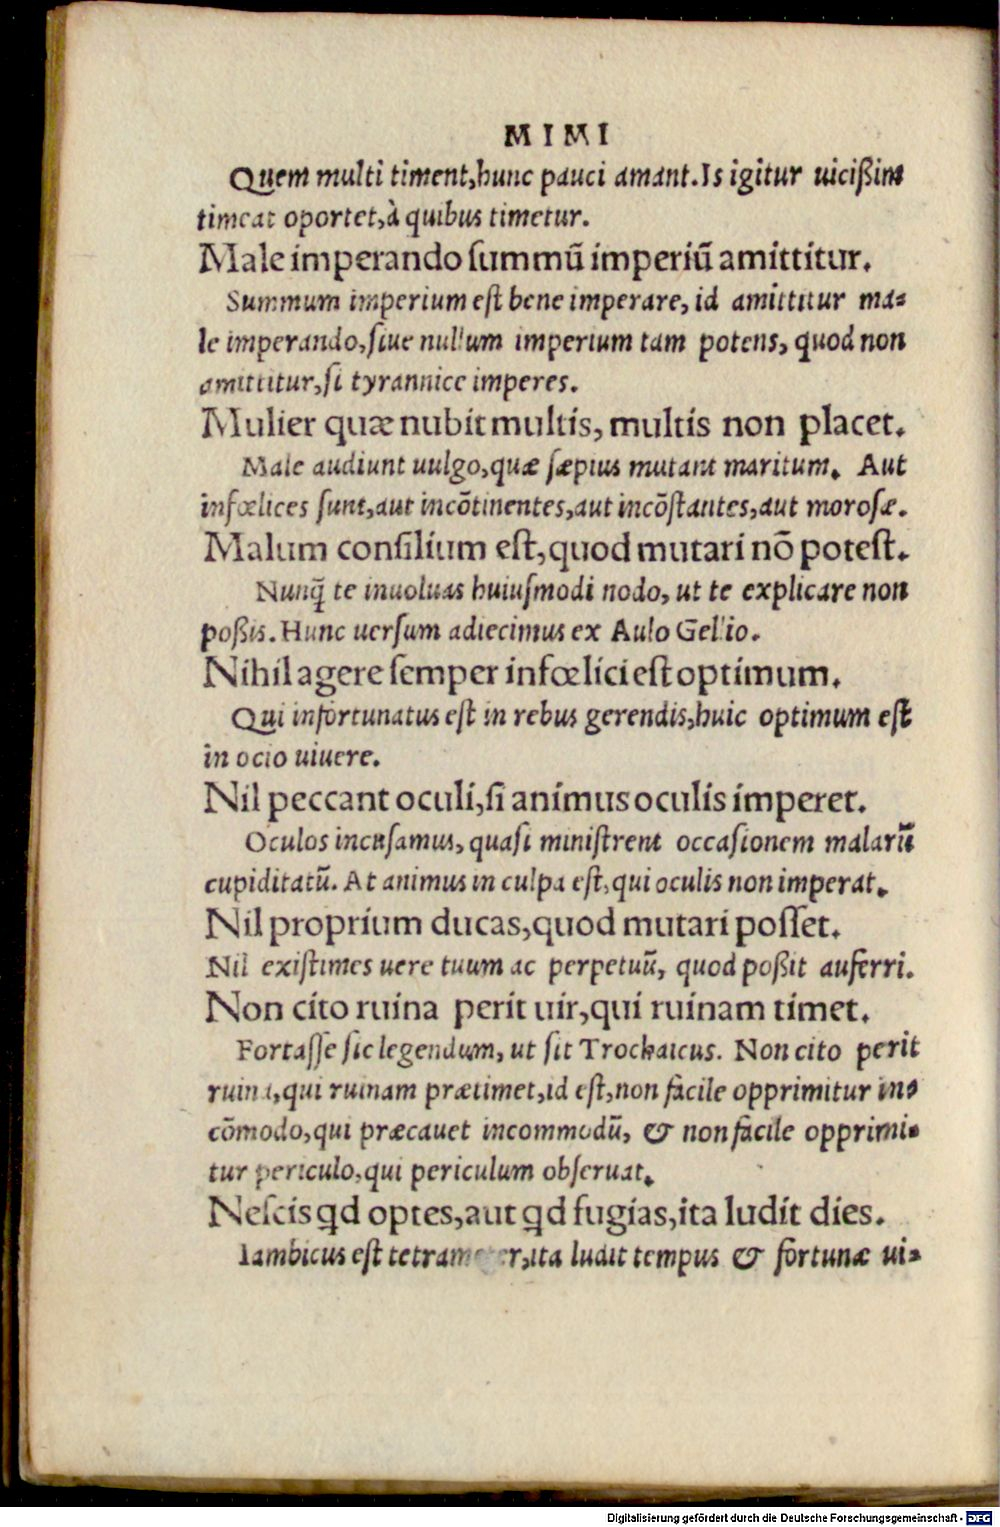 MIMI
Quem multi timent,hunc pauci amant.Is igitur uicißim
timeat oportet,à quibus timetur.
Male imperando ſummũ imperiũ amittitur.
Summum imperium eſt bene imperare, id amittitur ma-
le imperando,ſiue nullum imperium tam potens, quod non
amittitur,ſi tyrannice imperes.
Mulier quæ nubit multis, multis non placet.
Male audiunt uulgo,quæ ſæpius mutant maritum. Aut
infœlices ſunt,aut incõtinentes,aut incõſtantes,aut moroſæ.
Malum conſilium eſt,quod mutari nõ poteſt.
Nunq̃ te inuoluas huiuſmodi nodo, ut te explicare non
poßis.Hunc uerſum adiecimus ex Aulo Gellio.
Nihil agere ſemper infœlici eſt optimum.
Qui infortunatus eſt in rebus gerendis,huic optimum eſt
in ocio uiuere.
Nil peccant oculi,ſi animus oculis imperet.
Oculos incuſamus, quaſi miniſtrent occaſionem malarũ
cupiditatũ. At animus in culpa eſt,qui oculis non imperat.
Nil proprium ducas,quod mutari poſſet.
Nil exiſtimes uere tuum ac perpetuũ, quod poßit auferri.
Non cito ruina perit uir,qui ruinam timet.
Fortaſſe ſic legendum, ut ſit Trochaicus. Non cito perit
ruina,qui ruinam prætimet,id eſt,non facile opprimitur in-
cõmodo,qui præcauet incommodũ, & non facile opprimi-
tur periculo,qui periculum obſeruat.
Neſcis qd optes,aut qd fugias,ita ludit dies.
Iambicus eſt tetrameter,ita ludit tempus & fortunæ ui-
Digitalisierung gefördert durch die Deutsche Forschungsgemeinschaft - DFG